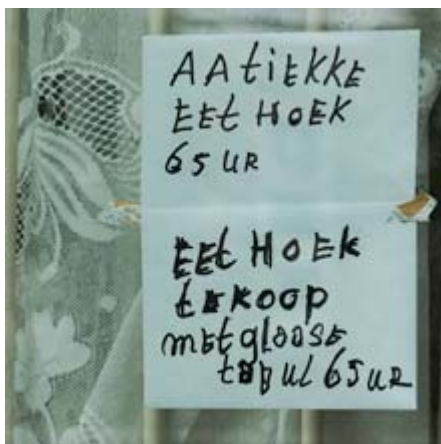 AAtiEKKE
EEt HOEK
65 UR
EEt HOEK
tEKOOP
mEtglaaSE
tabul 65 UR